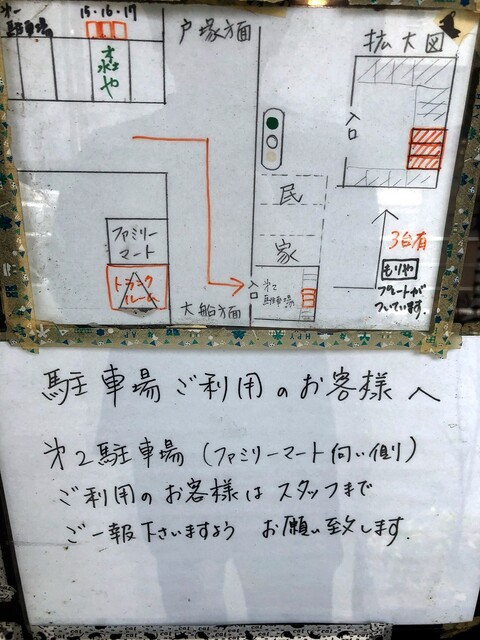 第一
駐車場
15・16・17
もりや
戸塚方面
拡大図
入口
民
家
ファミリー
マート
トランク
ルーム
大船方面
入口
第2
駐車場
3台有
もりや
プレートが
ついています。
駐車場ご利用のお客様へ
第2駐車場（ファミリーマート向い側）
ご利用のお客様はスタッフまで
ご一報下さいますよう お願い致します。